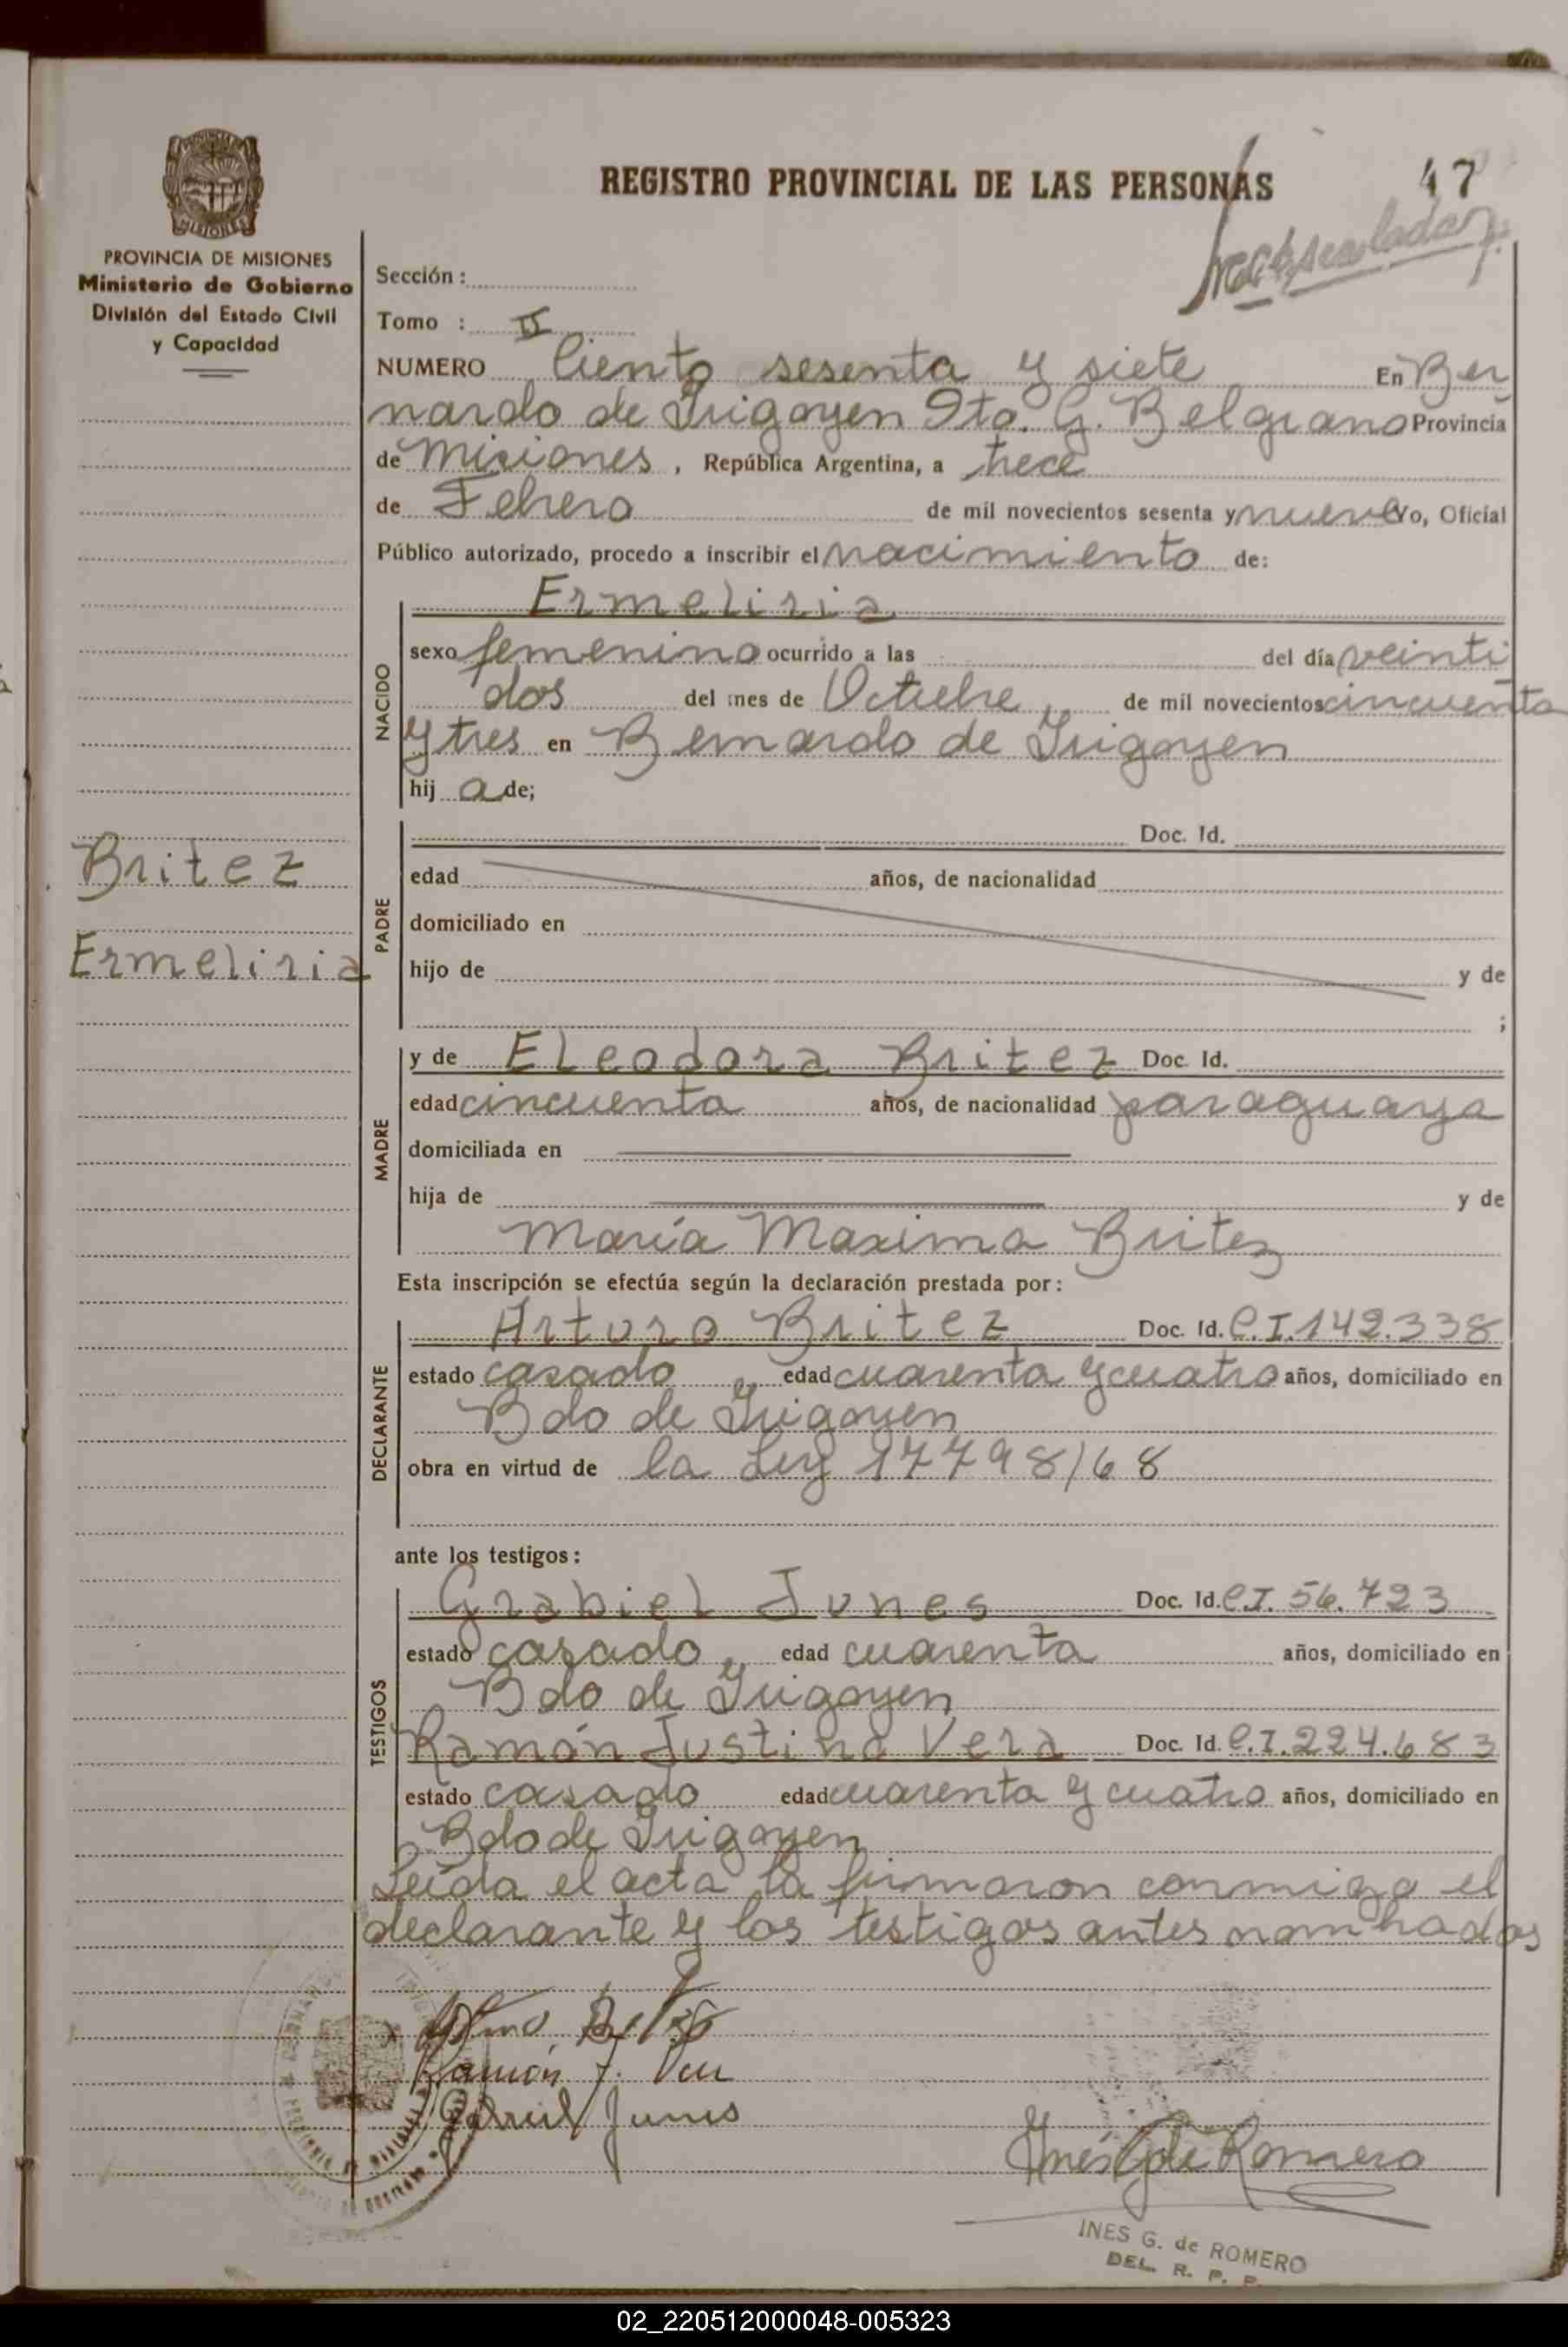 REGISTRO PROVINCIAL DE LAS PERSONAS
47
PROVINCIA DE MISIONES
Ministerio de Gobierno
División del Estado Civil
y Capacidad
Sección:
Tomo : II
NUMERO Ciento sesenta y siete En Ber
nardo de Irigoyen Dto. G. Belgrano Provincia
de Misiones, República Argentina, a trece
de Febrero de mil novecientos sesenta y nueve Yo, Oficial
Público autorizado, procedo a inscribir el nacimiento de:
NACIDO
Ermeliria
sexo femenino ocurrido a las del día veinti
dos del mes de Octubre de mil novecientos cincuenta
y tres en Bernardo de Irigoyen
hij a de;
Britez
Ermeliria
PADRE
Doc. Id.
edad años, de nacionalidad
domiciliado en
hijo de y de
;
MADRE
y de Eleodora Britez Doc. Id.
edad cincuenta años, de nacionalidad paraguaya
domiciliada en
hija de y de
María Maxima Britez
Esta inscripción se efectúa según la declaración prestada por:
DECLARANTE
Arturo Britez Doc. Id. C.I.142.338
estado casado edad cuarenta y cuatro años, domiciliado en
Bdo de Irigoyen
obra en virtud de la Ley 17798/68
ante los testigos:
TESTIGOS
Grabiel Junes Doc. Id. C.I. 56.723
estado casado, edad cuarenta años, domiciliado en
Bdo de Irigoyen
Ramón Justino Vera Doc. Id. C.I.224.683
estado casado edad cuarenta y cuatro años, domiciliado en
Bdo de Irigoyen
Leída el acta la firmaron conmigo el
declarante y los testigos antes nombrados
Ramón J. Vera
Gabriel Junes
Inés G de Romero
INES G. de ROMERO
DEL. R. P. P.
02_220512000048-005323